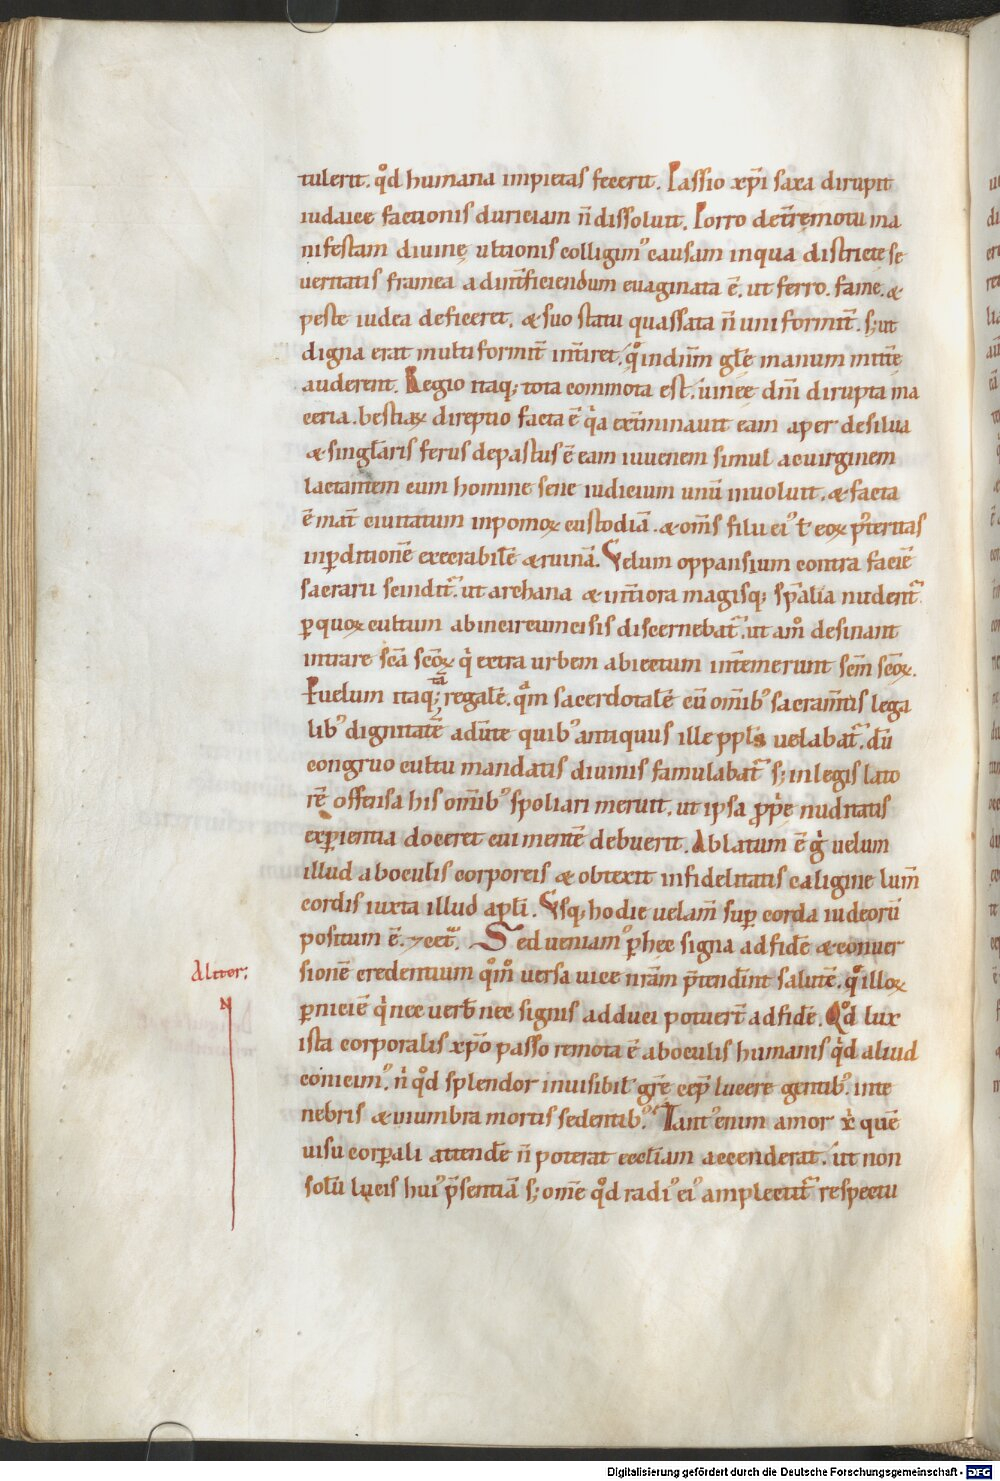 tulerit. qd̊ humana impietas fecerit. Passio xp̄i saxa dirupit
iudaice factionis duriciam n̄ dissoluit. Porro det̄remotu ma
nifestam diuinę ultionis colligim᾽ causam inqua districte se
ueritatis framea adint̄ficiendum euaginata ē. ut ferro. fame. &
peste iudea deficeret. & suo statu quassata n̄ uniformit̄. s; ut
digna erat multiformit̄ int̄iret. q̊ indn̄m glē manum mitte
auderent. Regio itaq; tota commota est. uineę dn̄i dirupta ma
ceria. bestiaꝝ direptio facta ē q̓a ext̄minauit eam aper desilua
& singlaris ferus depastus ē eam iuuenem simul acuirginem
lactantem cum homine sene iudicium unū inuoluit. & facta
ē mat̄ ciuitatum inpomoꝝ custodiā. & om̄s filii ei᾽ & eoꝝ p̄teritas
inꝑditionē execrabilē & ruinā. Velum oppansium contra faciē
sacrarii scindit᷑. ut archana & int̄iora magisq; sp̄alia nudent᷑.
ꝑ quoꝝ cultum abincircumcisis discernebat᷑. ut am̊ desinant
intrare sc̄a sc̄oꝝ q̓ extra urbem abiectum int̄emerunt sc̄m sc̄oꝝ.
P uelum itaq; tā regalē. qᷓm sacerdotalē cū om̄ib᾽ sacram̄tis lega
lib᾽ dignitatē adūte quib᾽ antiquus ille ppl̄s uelabat᷑. dū
congruo cultu mandatis diuinis famulabat᷑ s; inlegis lato
rē offensa his om̄ib᾽ spoliari meruit. ut ipsa ꝓp̓e nuditatis
exꝑientia doceret cui mentē debuerit. Ablatum ē g̓ uelum
illud aboculis corporeis & obtexit infidelitatis caligine lum̄
cordis iuxta illud apl̄i. Vsq; hodie uelam̄ suꝑ corda iudeorū
positum ē. ⁊ cet᷑. Sed ueniam᾽ ꝑ hec signa adfidē & conuer
sionē credentium qm̊ uersa uice nr̄am p̄tendūt salutē. q̊ illoꝝ
ꝑniciē q̓ nec uerb̄ nec signis adduci potuert̄ adfidē. Qd̊ lux
ista corporalis xp̄o passo remota ē aboculis humanis qd̓ aliud
conicim᾽. n̓ qd̊ splendor inuisibil̄ grē cep̄ lucere gentib᾽. inte
nebris & inumbra mortis sedentib᾽. Tant᾽ enim amor x̓ quē
uisu corꝑali attendē n̄ poterat eccl̄iam accenderat. ut non
solū lucis hui᾽ p̄sentiā s; om̄e qd̊ radi᾽ ei᾽ amplectit᷑ respectu
Alcior;
N